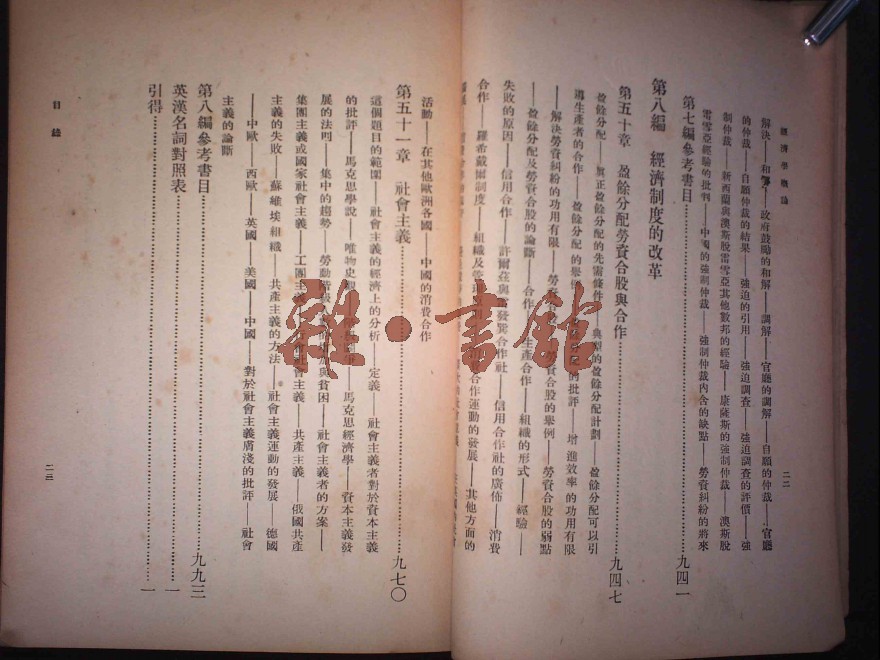 經濟學概論
二二
解決——和解——政府鼓勵的和解——調解——官廳的調解——自願的仲裁——官廳
的仲裁——自願仲裁的結果——強迫的引用——強迫調查——強迫調查的評價——強
制仲裁——新西蘭與澳斯脫雷雪亞其他數邦的經驗——康薩斯的強制仲裁——澳斯脫
雷雪亞經驗的批判——中國的強制仲裁——強制仲裁內含的缺點——勞資糾紛的將來
第七編參考書目……九四一
第八編 經濟制度的改革
第五十章 盈餘分配勞資合股與合作……九四七
盈餘分配——真正盈餘分配的先需條件——典型的盈餘分配計劃——盈餘分配可以引
導生產者的合作——盈餘分配的舉例——的批評——增進效率的功用有限
——解決勞資糾紛的功用有限——勞資合股的舉例——勞資合股的弱點
——盈餘分配及勞資合股的論斷——合作——生產合作——組織的形式——經驗——
失敗的原因——信用合作——許爾茲與雷發巽合作社——信用合作社的廣佈——消費
合作——羅希戴爾制度——組織及管理——合作運動的發展——其他方面的
活動——在其他歐洲各國——中國的消費合作
第五十一章 社會主義……九七〇
這個題目的範圍——社會主義的經濟上的分析——定義——社會主義者對於資本主義
的批評——馬克思學說——唯物史觀——馬克思經濟學——資本主義發
展的法則——集中的趨勢——勞動階級與貧困——社會主義者的方案——
集團主義或國家社會主義——工團主義——社會主義——共產主義——俄國共產
主義的失敗——蘇維埃組織——共產主義的方法——社會主義運動的發展——德國
——中歐——西歐——英國——美國——中國——對於社會主義膚淺的批評——社會
主義的論斷
第八編參考書目……九九三
英漢名詞對照表……一
引得……一
目錄
二三
雜·書館